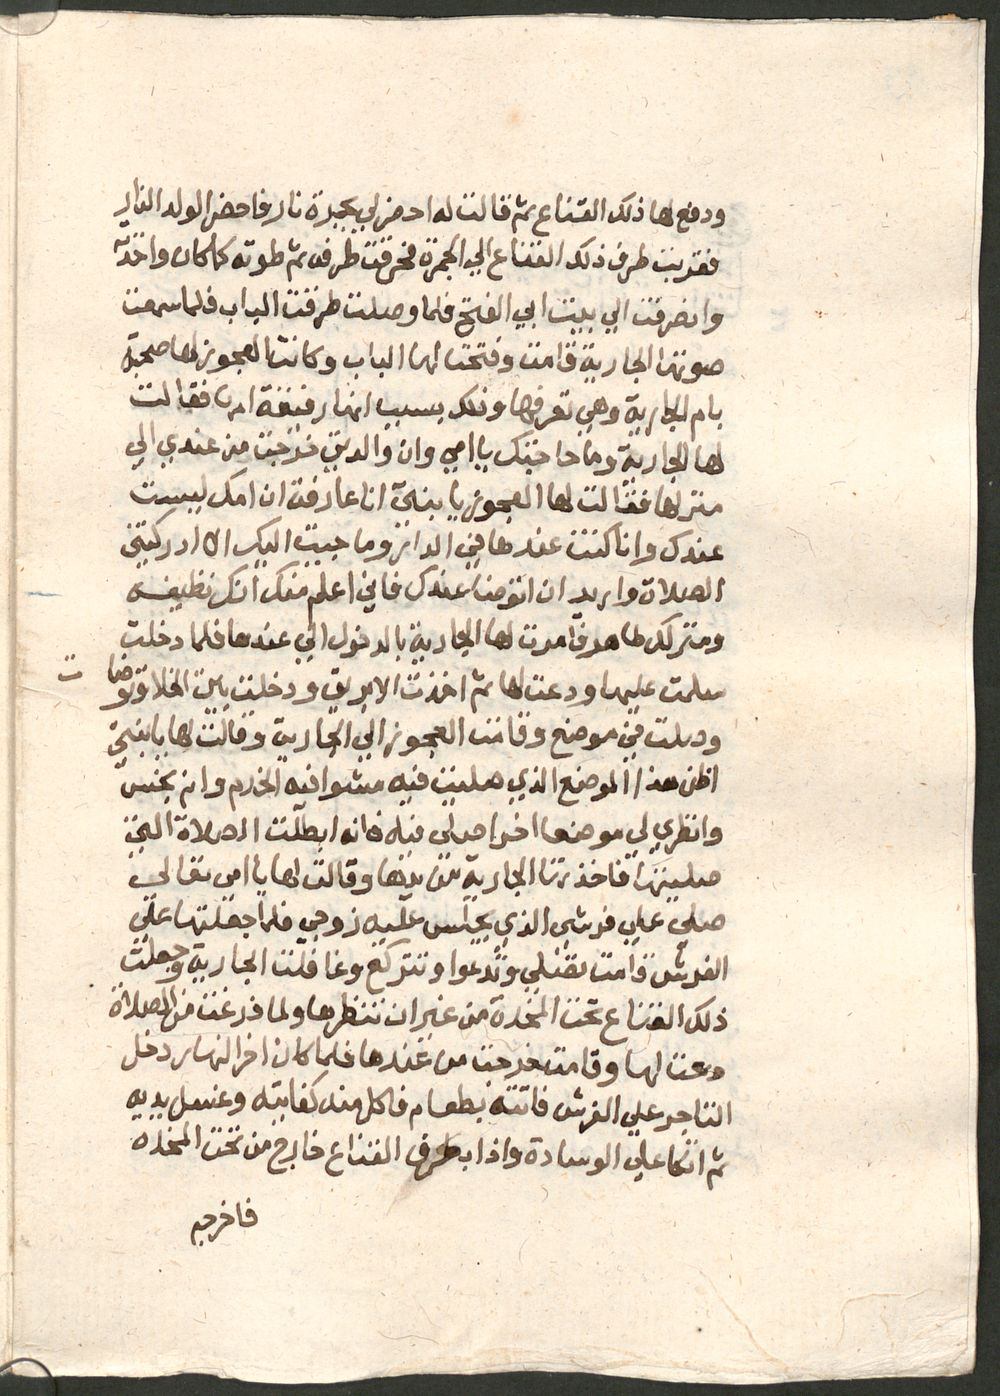 ودفع لها ذلك القناع ثم قالت له احضر لي بجمرة نار فاحضر الولد النار
فقربت طرف ذلك القناع الي الجمرة فحرقت طرفه ثم طوته كما كان واخذته
وانصرفت الي بييت ابي الفتح فلما وصلت طرقت الباب فلما سمعت
صوتها الجارية قامت وفتحت لها الباب وكانت العجوز لها صحبة
بام الجارية وهي تعرفها وذلك بسبب انها رفيقة امها فقالت
لها الجارية وما حاجتك يا امي وان والدتي خرجت من عندي الي
منزلها فقالت لها العجوز يا بنتي انا عارفة ان امك ليست
عندك وانا كنت عندها في الدار وما جييت اليك الا ادركتني
الصلاة واريد ان اتوضا عندك فاني اعلم منك انك نظيفه
ومنزلك طاهر فامرت لها الجارية بالدخول الي عندها فلما دخلت
سلمت عليها ودعت لها ثم اخذت الابريق ودخلت بيت الخلا وتوضات
وصلت في موضع وقامت العجوز الي الجارية وقالت لها يا بنتي
اظن هذا الموضع الذي صليت فيه مشوا فيه الخدم وانه نجس
وانظري لي موضعا اخر اصلي فيه فانه ابطلت الصلاة التي
صليتها فاخذتها الجارية من يدها وقالت لها يا امي تعالي
صلي علي فرشي الذي يجلس عليه زوجي فلما جعلتها علي
الفرش قامت تصلي وتدعوا وتركع وغافلت الجارية وجعلت
ذلك القناع تحت المخدة من غير ان تنظرها ولما فرغت من الصلاة
دعت لها وقامت خرجت من عندها فلما كان اخر النهار دخل
التاجر علي الفرش فاتته بطعام فاكل منه كفايته وغسل يديه
ثم اتكا علي الوسادة واذا بطرف القناع خارج من تحت المخده
فاخرجه